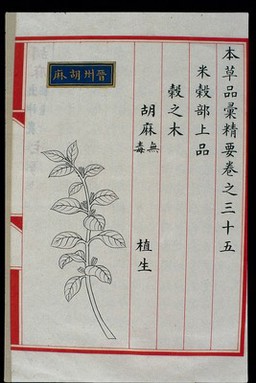 本草品彙精要卷之三十五
米穀部上品
穀之木
胡麻無毒
植生
晉州胡麻